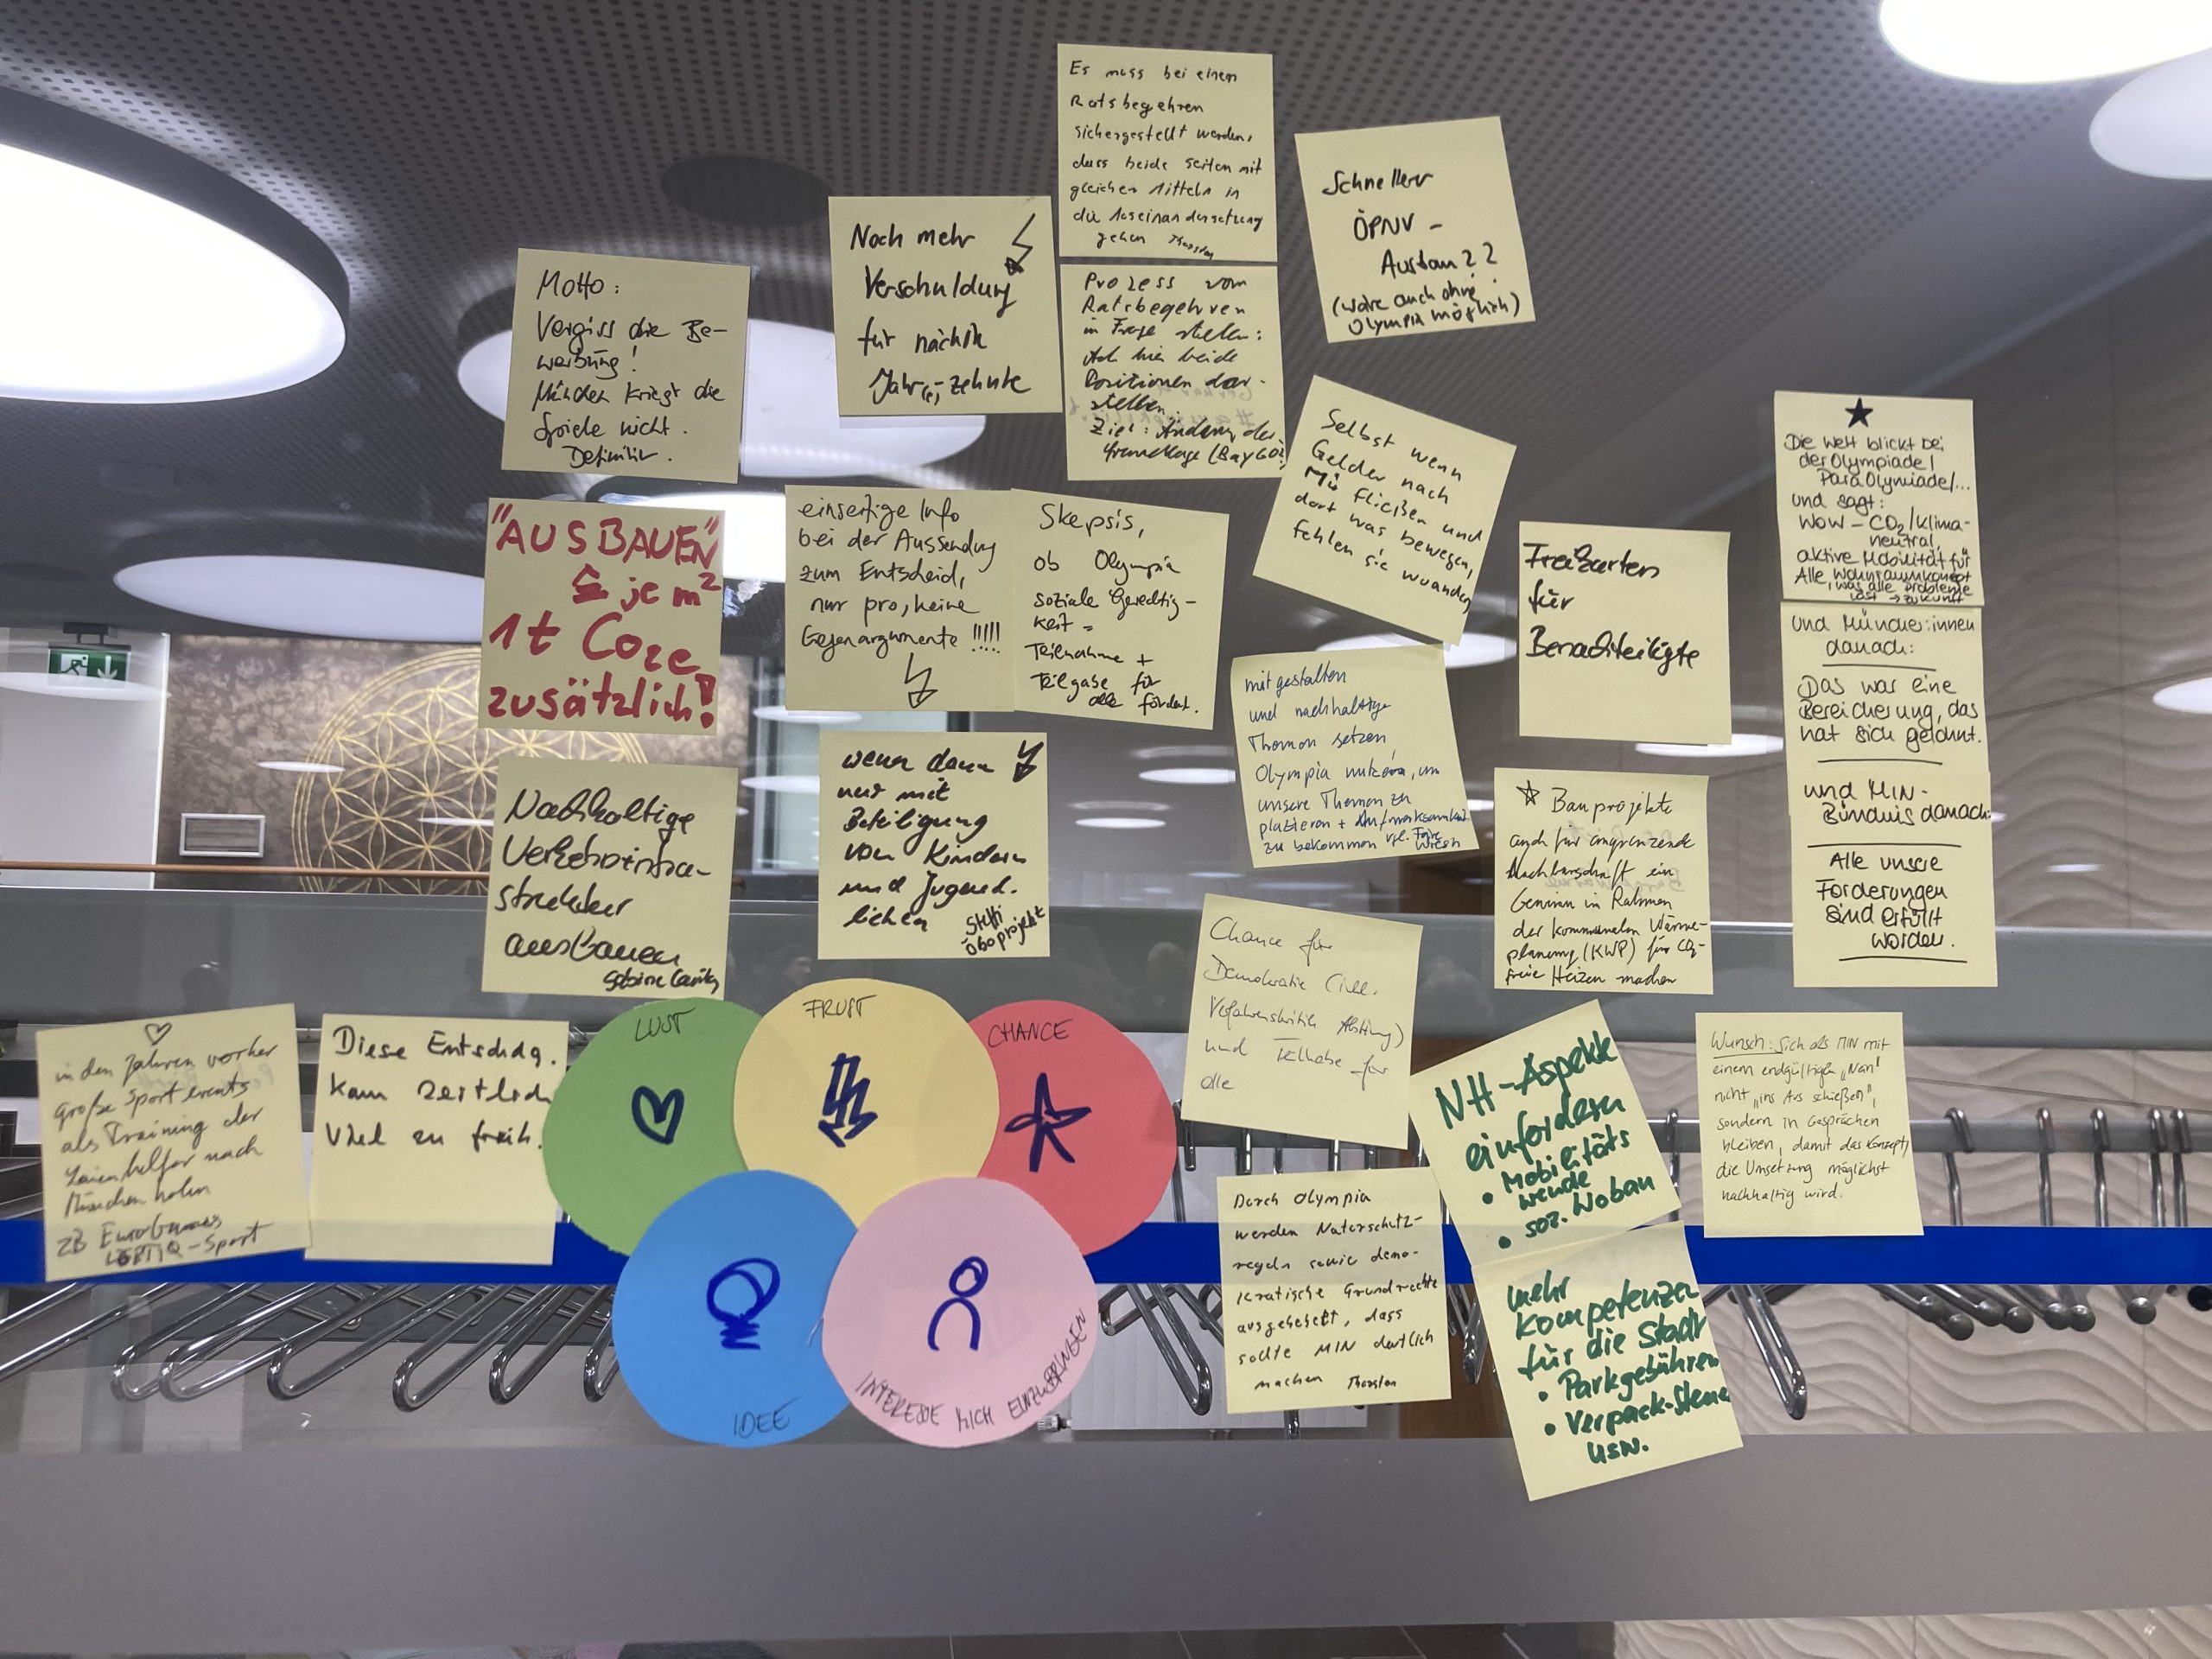 Es muss bei einem
Ratsbegehren
sichergestellt werden,
dass beide Seiten mit
gleichen Mitteln in
die Auseinandersetzung
gehen Thorsten
Schneller
ÖPNV -
Ausbau??
(wäre auch ohne
Olympia möglich)
Noch mehr
Verschuldung
für nächste
Jahr(e)-zehnte
Motto:
Vergiss die Be-
werbung!
München kriegt die
Spiele nicht.
Definitiv.
Prozess vom
Ratsbegehren
in Frage stellen:
Auch hier beide
Positionen dar-
stellen.
Ziel: Änderung der
Grundlage (BayGO?)
Selbst wenn
Gelder nach
Mü fließen und
dort was bewegen,
fehlen sie woanders
Die Welt blickt bei
der Olympiade/
ParaOlymiade/...
und sagt:
WOW - CO2/Klima-
neutral,
aktive Mobilität für
Alle, Wohnraumkonzept
, was alle Probleme
löst → Zukunft
und Münchner:innen
danach:
Das war eine
Bereicherung, das
hat sich gelohnt.
und MIN-
Bündnis danach:
Alle unsere
Forderungen
sind erfüllt
worden.
"AUSBAUEN"
≙ je m²
1t CO2e
zusätzlich!
einseitige Info
bei der Aussendung
zum Entscheid,
nur pro, keine
Gegenargumente !!!!!
Skepsis,
ob Olympia
soziale Gerechtig-
keit =
Teilnahme +
Teilgabe für
alle fördert.
Freikarten
für
Benachteiligte
mitgestalten
und nachhaltige
Themen setzen,
Olympia nutzen, um
unsere Themen zu
platzieren + Aufmerksamkeit
zu bekommen vgl. Faire
Wiesn
Nachhaltige
Verkehrsinfra-
struktur
ausbauen
Sabine
wenn dann
nur mit
Beteiligung
von Kindern
und Jugend-
lichen
Steffi
Ökoprojekt
Bauprojekte
auch für angrenzende
Nachbarschaft ein
Gewinn im Rahmen
der kommunalen Wärme-
planung (KWP) für CO2-
freie Heizen machen
Chance für
Demokratie (inkl.
Verfahrenskritik Abstimmg)
und Teilhabe für
alle
NH-Aspekte
einfordern
• Mobilitäts
wende
• soz. Woban
Wunsch: Sich als MIN mit
einem endgültigen „Nein"
nicht „ins Aus schießen",
sondern in Gesprächen
bleiben, damit das Konzept/
die Umsetzung möglichst
nachhaltig wird.
in den Jahren vorher
große Sportevents
als Training der
Laienhelfer nach
München holen
ZB EuroGames
LGBTIQ-Sport
Diese Entschdg.
kam zeitlich
viel zu früh.
LUST
FRUST
CHANCE
IDEE
INTERESSE MICH EINZUBRINGEN
Durch Olympia
werden Naturschutz-
regeln sowie demo-
kratische Grundrechte
ausgehebelt, dass
sollte MIN deutlich
machen Thorsten
mehr
Kompetenzen
für die Stadt
• Parkgebühren
• Verpack-Steuer
usw.